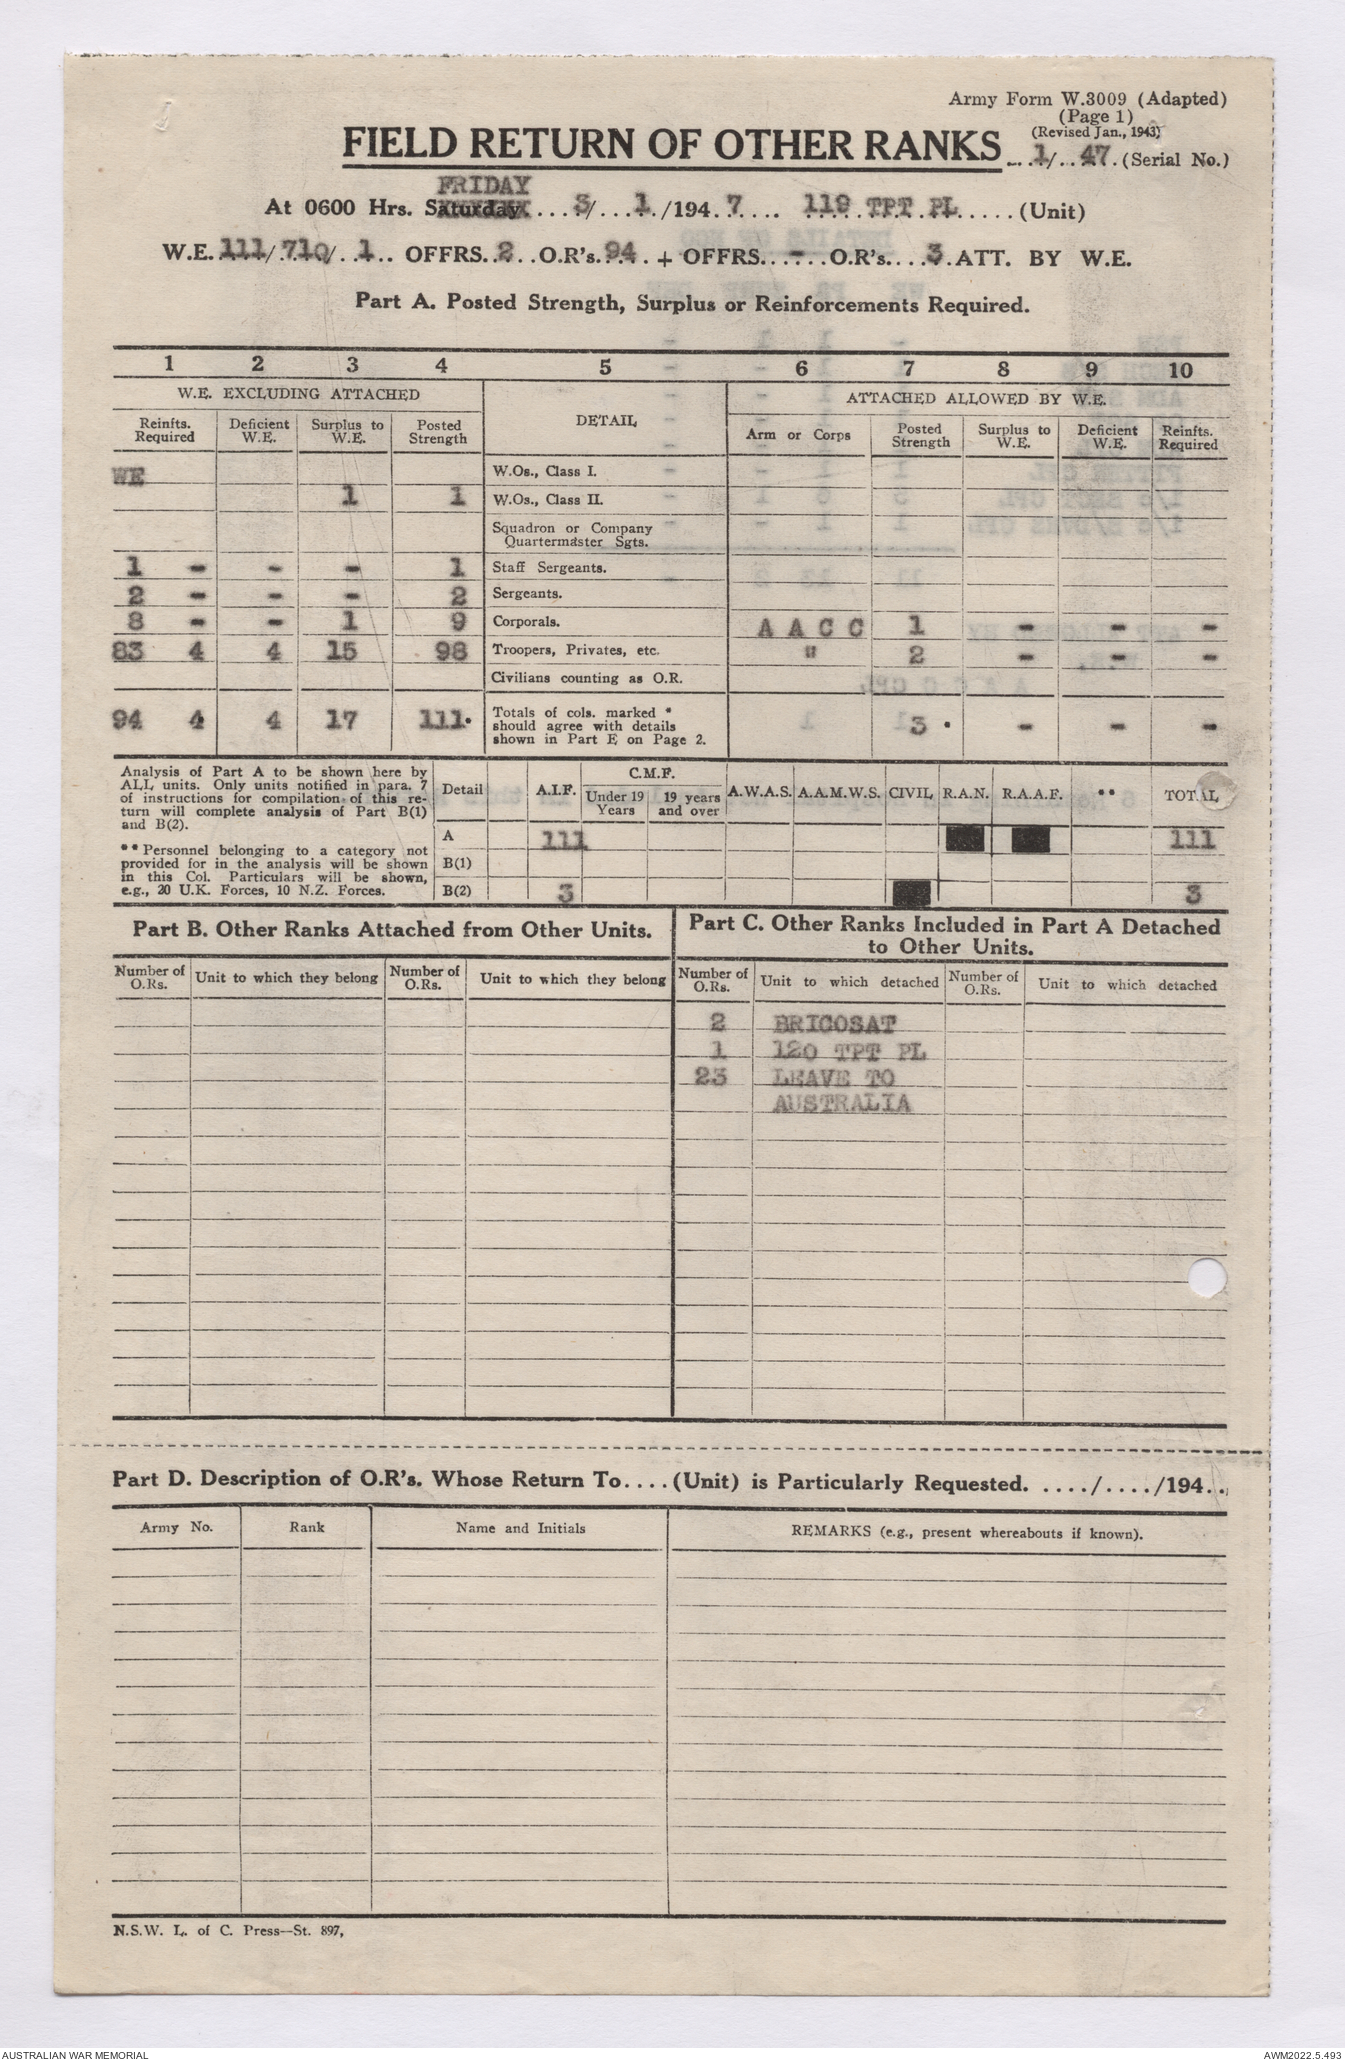 Army Form W.3009 (Adapted)
(Page 1)
(Revised Jan., 1943)
FIELD RETURN OF OTHER RANKS ... 1/..47. (Serial No.)
FRIDAY
At 0600 Hrs. Saturday.... 3/...1./194.7.... 119 TPT PL..... (Unit)
W.E. 111/.710/..1.. OFFRS..2..O.R's.94.. + OFFRS...-.. O.R's....3.ATT. BY W.E.
Part A. Posted Strength, Surplus or Reinforcements Required.
1 2 3 4 5 6 7 8 9 10
W.E. EXCLUDING ATTACHED DETAIL ATTACHED ALLOWED BY W.E.
Reinfts. Required Deficient W.E. Surplus to W.E. Posted Strength Arm or Corps Posted Strength Surplus to W.E. Deficient W.E. Reinfts. Required
WE W.Os., Class I.
1 1 W.Os., Class II.
Squadron or Company
Quartermaster Sgts.
1 - - - 1 Staff Sergeants.
2 - - - 2 Sergeants.
8 - - 1 9 Corporals. A A C C 1 - - -
83 4 4 15 98 Troopers, Privates, etc. " 2 - - -
Civilians counting as O.R.
94 4 4 17 111. Totals of cols. marked * 3 . - - -
should agree with details
shown in Part E on Page 2.
Analysis of Part A to be shown here by
ALL units. Only units notified in para. 7
of instructions for compilation of this re-
turn will complete analysis of Part B(1)
and B(2).
** Personnel belonging to a category not
provided for in the analysis will be shown
in this Col. Particulars will be shown,
e.g., 20 U.K. Forces, 10 N.Z. Forces.
Detail A.I.F. C.M.F. Under 19 Years 19 years and over A.W.A.S. A.A.M.W.S. CIVIL R.A.N. R.A.A.F. ** TOTAL
A 111 111
B(1)
B(2) 3 3
Part B. Other Ranks Attached from Other Units.
Number of O.Rs. Unit to which they belong Number of O.Rs. Unit to which they belong
Part C. Other Ranks Included in Part A Detached
to Other Units.
Number of O.Rs. Unit to which detached Number of O.Rs. Unit to which detached
2 BRICOSAT
1 120 TPT PL
23 LEAVE TO
AUSTRALIA
Part D. Description of O.R's. Whose Return To....(Unit) is Particularly Requested. ..../..../194..
Army No. Rank Name and Initials REMARKS (e.g., present whereabouts if known).
N.S.W. L. of C. Press—St. 897,
AUSTRALIAN WAR MEMORIAL AWM2022.5.493